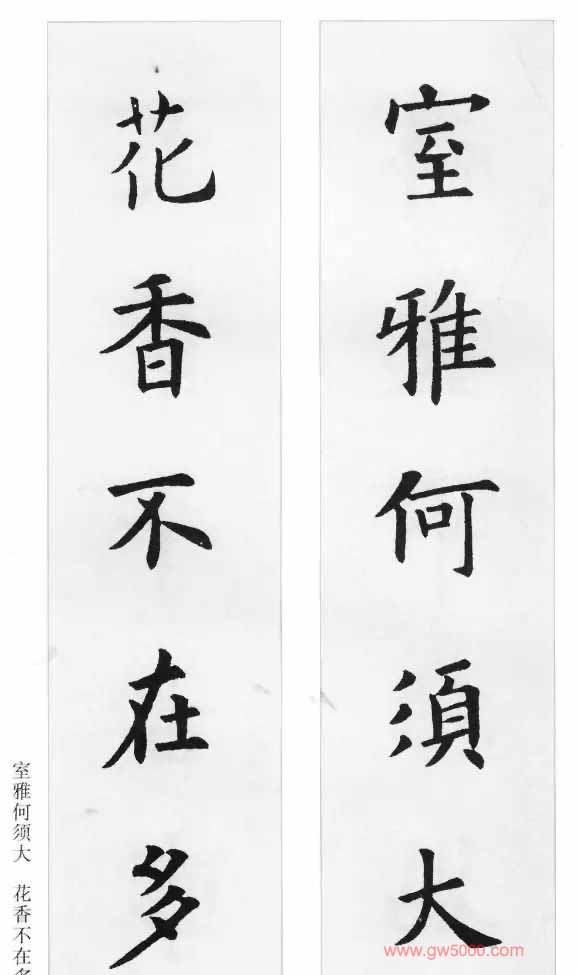 室雅何須大
花香不在多
室雅何须大 花香不在多
www.gw5000.com